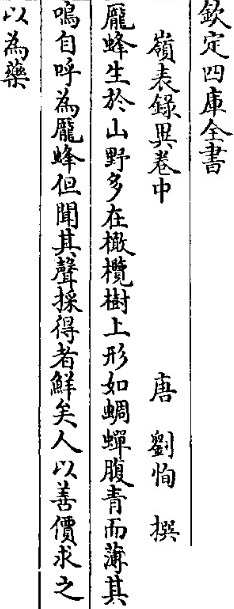 欽定四庫全書
嶺表錄異卷中
唐 劉恂 撰
龎蜂生於山野多在橄欖樹上形如蜩蟬腹青而薄其
鳴自呼為龎蜂但聞其聲採得者鮮矣人以善價求之
以為藥